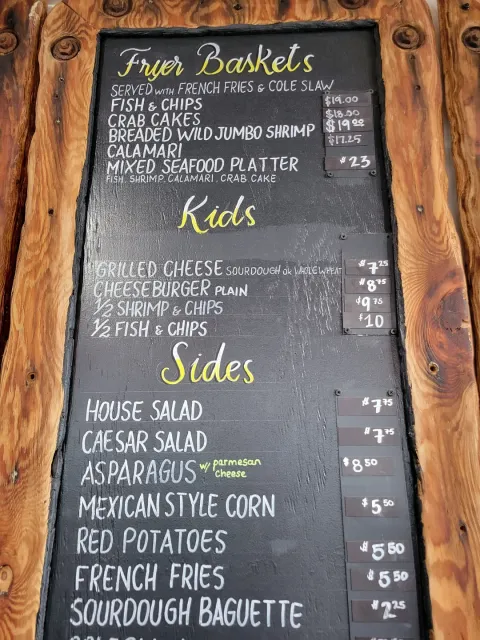 Fryer Baskets
SERVED WITH FRENCH FRIES & COLE SLAW
FISH & CHIPS $19.00
CRAB CAKES $18.50
BREADED WILD JUMBO SHRIMP $19.00
CALAMARI $17.25
MIXED SEAFOOD PLATTER $23
FISH, SHRIMP, CALAMARI, CRAB CAKE
Kids
GRILLED CHEESE SOURDOUGH OR WHOLE WHEAT $7.25
CHEESEBURGER PLAIN $8.75
1/2 SHRIMP & CHIPS $9.75
1/2 FISH & CHIPS $10
Sides
HOUSE SALAD $7.75
CAESAR SALAD $7.75
ASPARAGUS w/ parmesan cheese $8.50
MEXICAN STYLE CORN $5.50
RED POTATOES $5.50
FRENCH FRIES $5.50
SOURDOUGH BAGUETTE $2.25